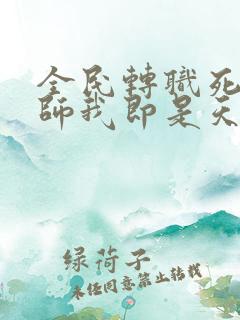 全民轉職死
師我即是天
绿荷子
未任同意禁止转载